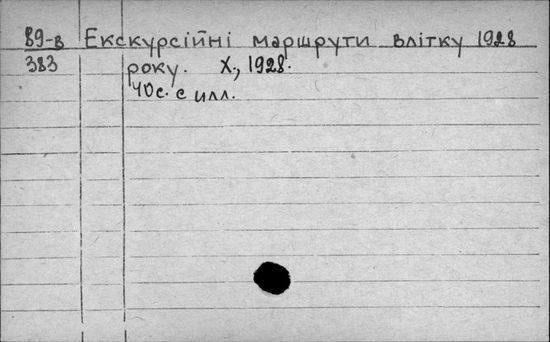 89-в Екскурсійні маршрути влітку 1928
383 року. Х., 1928.
40с. с илл.